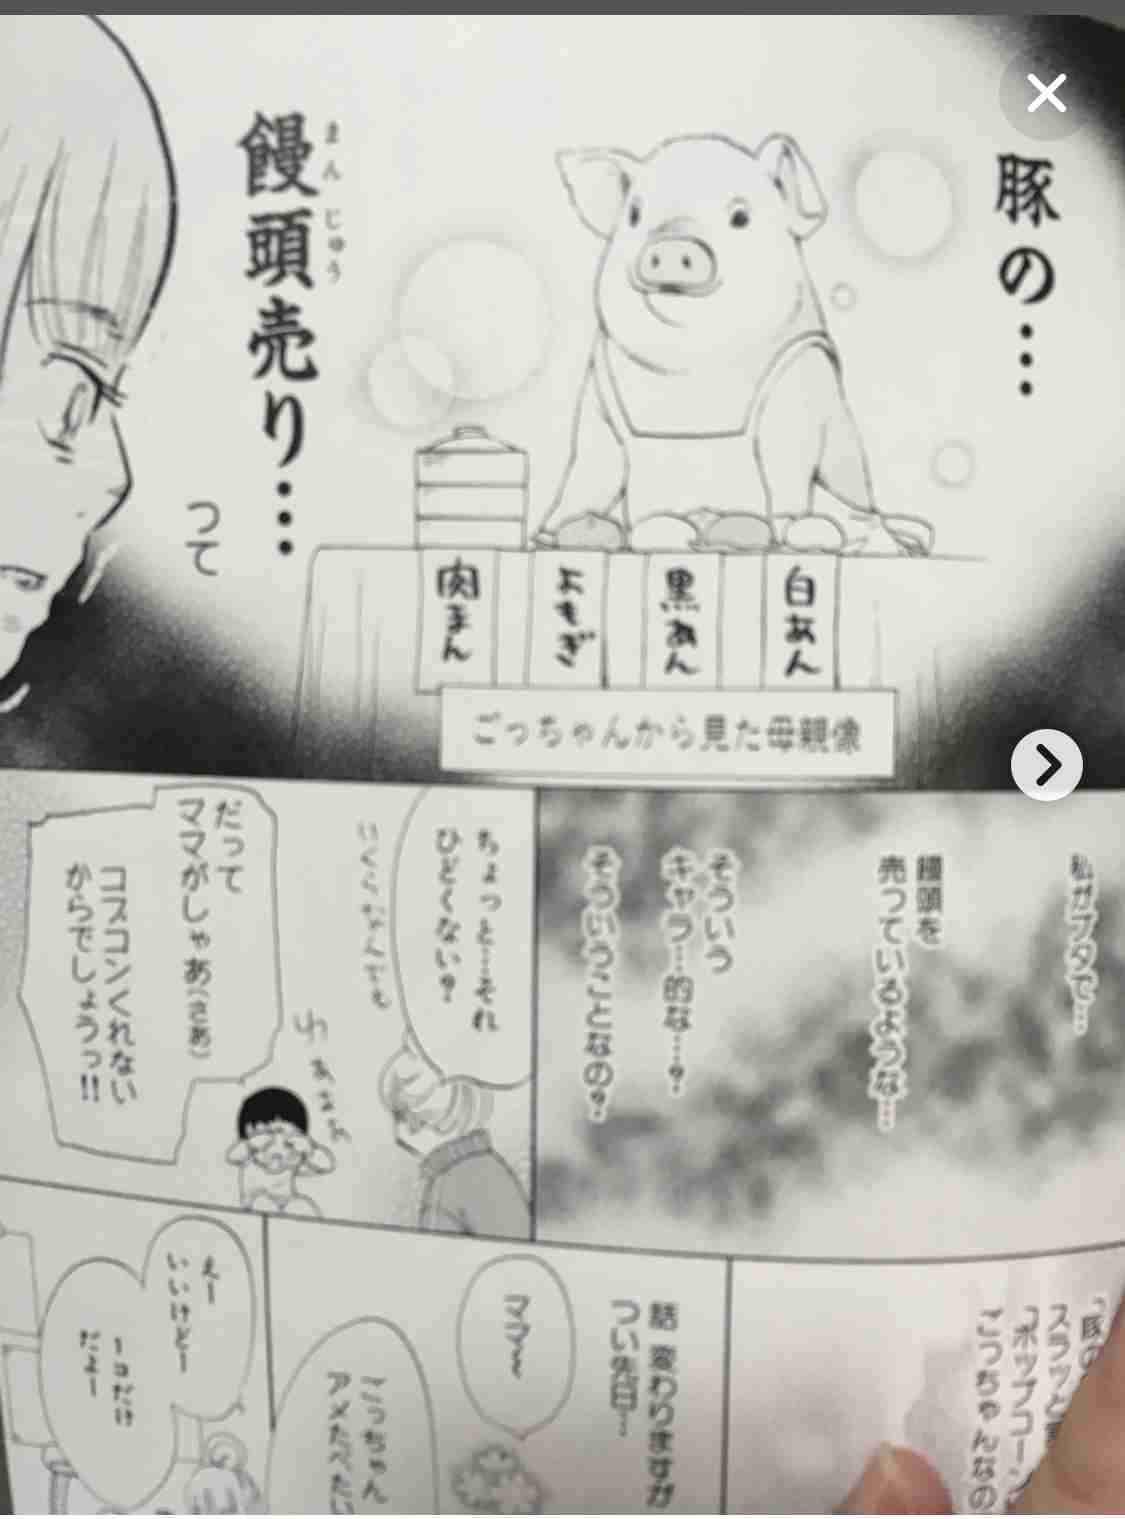 豚の…
饅頭売り…
まんじゅう
って
白あん
黒あん
よもぎ
肉まん
ごっちゃんから見た母親像
私がブタで…
饅頭を
売っているような…
そういう
キャラ…的な…？
そういうことなの？
ちょっと…それ
ひどくない？
いくらなんでも
だって
ママがしゃあ（さあ）
コプコンくれない
からでしょうっ!!
「豚の
スラッと
「ポップコーン
ごっちゃんなの
話変わりますが
つい先日…
ママ〜
ごっちゃん
アメたべたい
えー
いいけどー
1コだけ
だよー